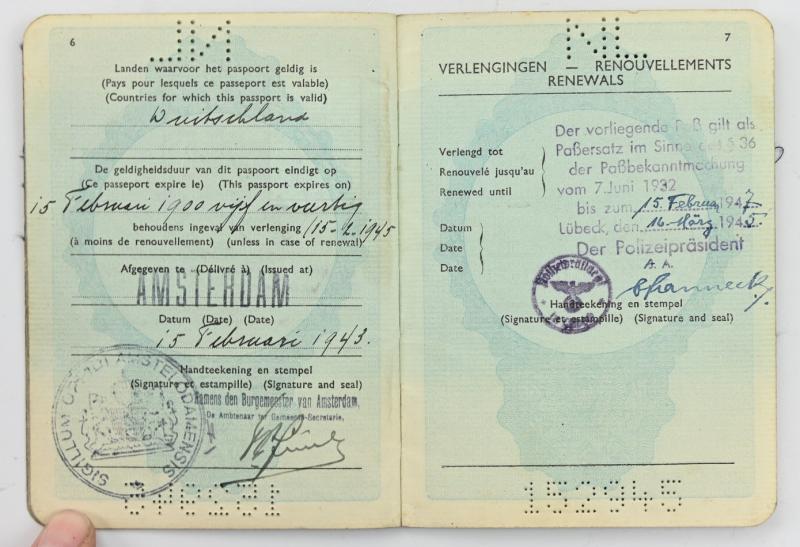 6
Landen waarvoor het paspoort geldig is
(Pays pour lesquels ce passeport est valable)
(Countries for which this passport is valid)
Duitschland
De geldigheidsduur van dit paspoort eindigt op
(Ce passeport expire le) (This passport expires on)
15 Februari 1900 vijf en veertig
behoudens ingeval van verlenging /15-2-1945
(à moins de renouvellement) (unless in case of renewal)
Afgegeven te (Délivré à) (Issued at)
AMSTERDAM
Datum (Date) (Date)
15 Februari 1943.
Handteekening en stempel
(Signature et estampille) (Signature and seal)
Namens den Burgemeester van Amsterdam,
De Ambtenaar ter Gemeente-Secretarie,
SIGILLUM AMSTELODAMENSIS
NL
7
VERLENGINGEN — RENOUVELLEMENTS
RENEWALS
Verlengd tot
Renouvelé jusqu'au
Renewed until
Datum
Date
Date
Der vorliegende Paß gilt als
Paßersatz im Sinne des § 36
der Paßbekanntmachung
vom 7. Juni 1932
bis zum 15. Februar 1947
Lübeck, den 16. März 1945
Der Polizeipräsident
Handteekening en stempel
(Signature et estampille) (Signature and seal)
152945